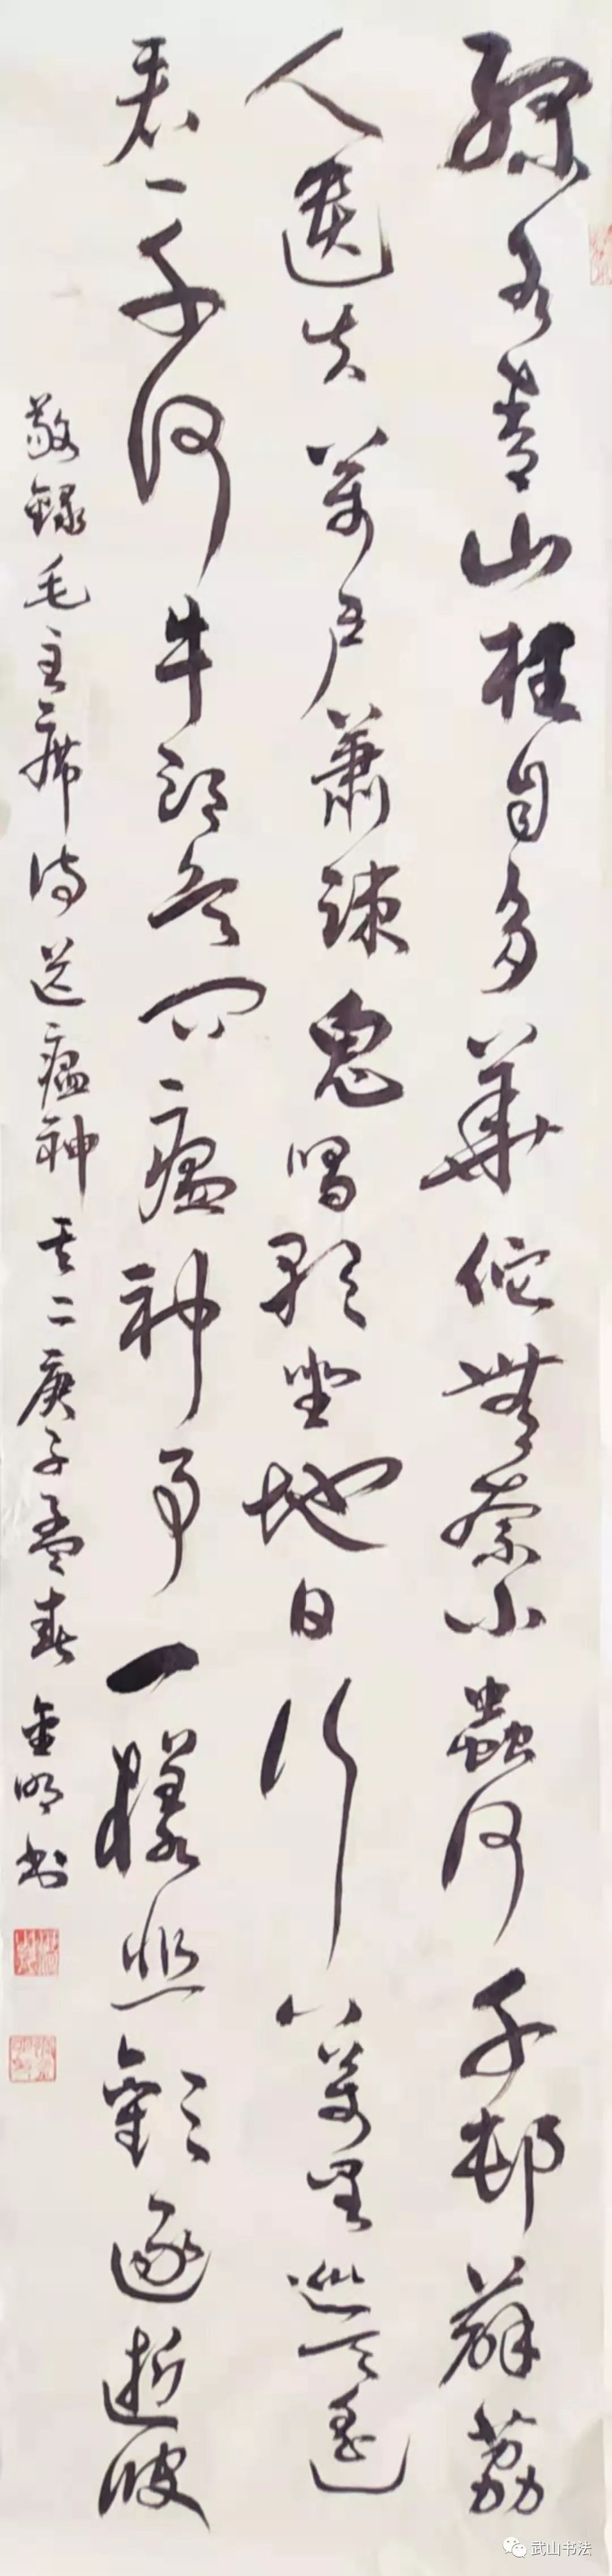 綠水青山枉自多華佗無奈小蟲何千邨薜荔
人遺矢萬户蕭疎鬼唱歌坐地日行八萬里巡天遥
看一千河牛郎欲问瘟神事一樣悲歡逐逝波
敬錄毛主席诗送瘟神其二庚子孟春金明书
武山书法